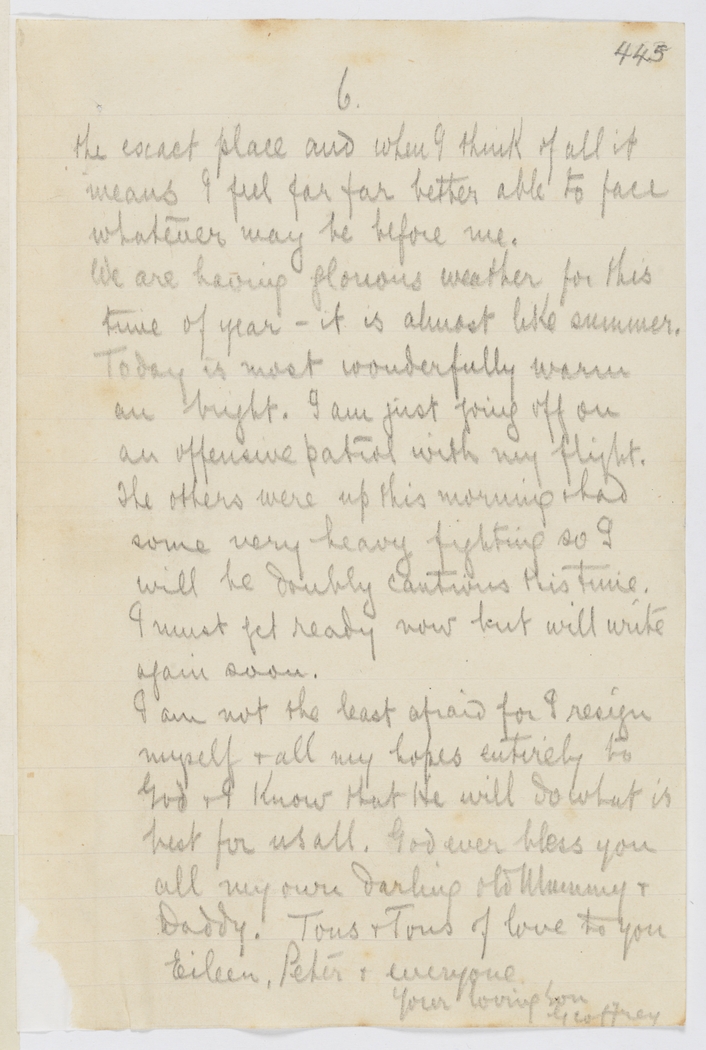 445
6.
the exact place and when I think of all it
means I feel far far better able to face
whatever may be before me.
We are having glorious weather for this
time of year - it is almost like summer.
Today is most wonderfully warm
an bright. I am just going off on
an offensive patrol with my flight.
The others were up this morning & had
some very heavy fighting so I
will be doubly cautious this time.
I must get ready now but will write
again soon.
I am not the least afraid for I resign
myself & all my hopes entirely to
God & I know that He will do what is
best for us all. God ever bless you
all my own darling old Mummy &
Daddy. Tons & Tons of love to you
Eileen, Peter & everyone
Your loving Son
Geoffrey